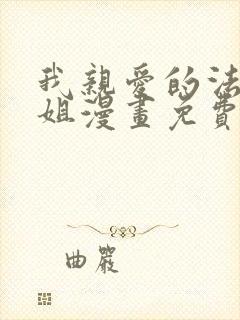 我親愛的法
姐漫畫免費
曲嚴